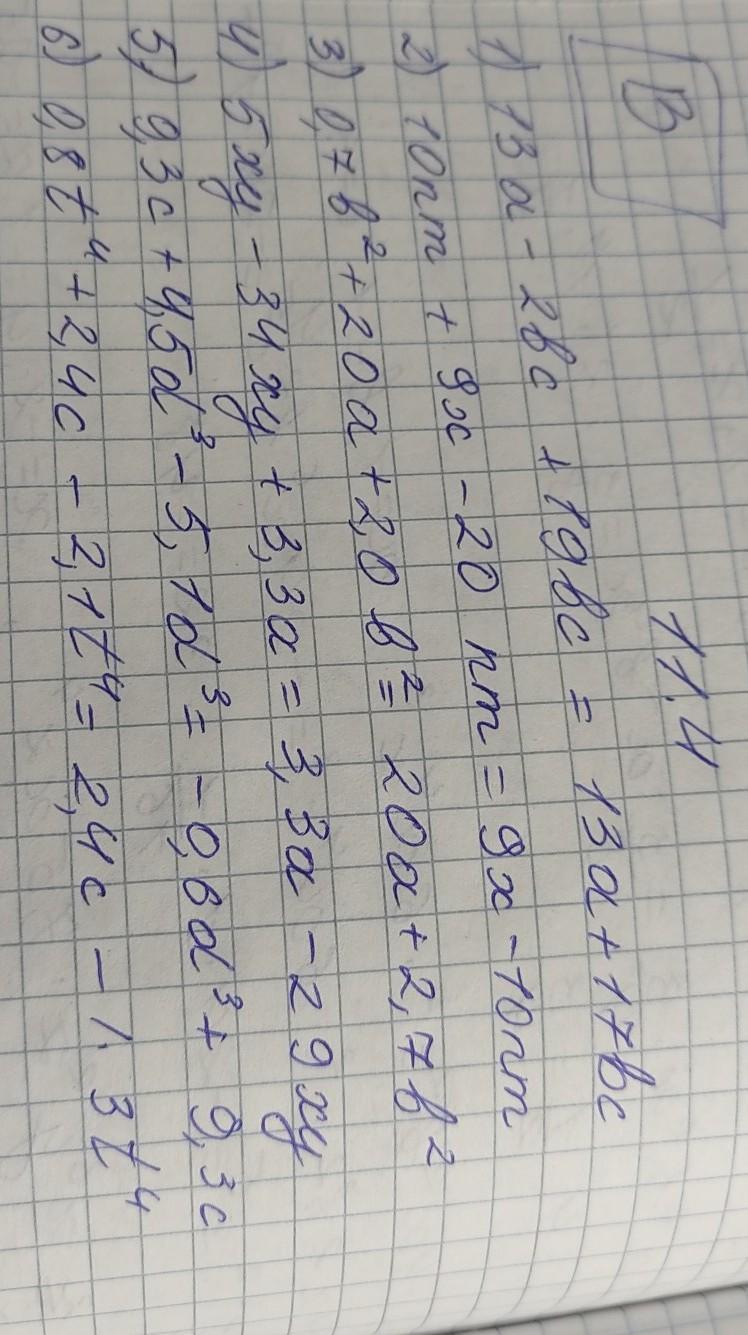 11.4
В
1) 13a - 2bc + 19bc = 13a + 17bc
2) 10nm + 9x - 20nm = 9x - 10nm
3) 0,7b² + 20a + 2,0b² = 20a + 2,7b²
4) 5xy - 34xy + 3,3a = 3,3a - 29xy
5) 9,3c + 4,5d³ - 5,1d³ = -0,6d³ + 9,3c
6) 0,8t⁴ + 2,4c - 2,1t⁴ = 2,4c - 1.3t⁴